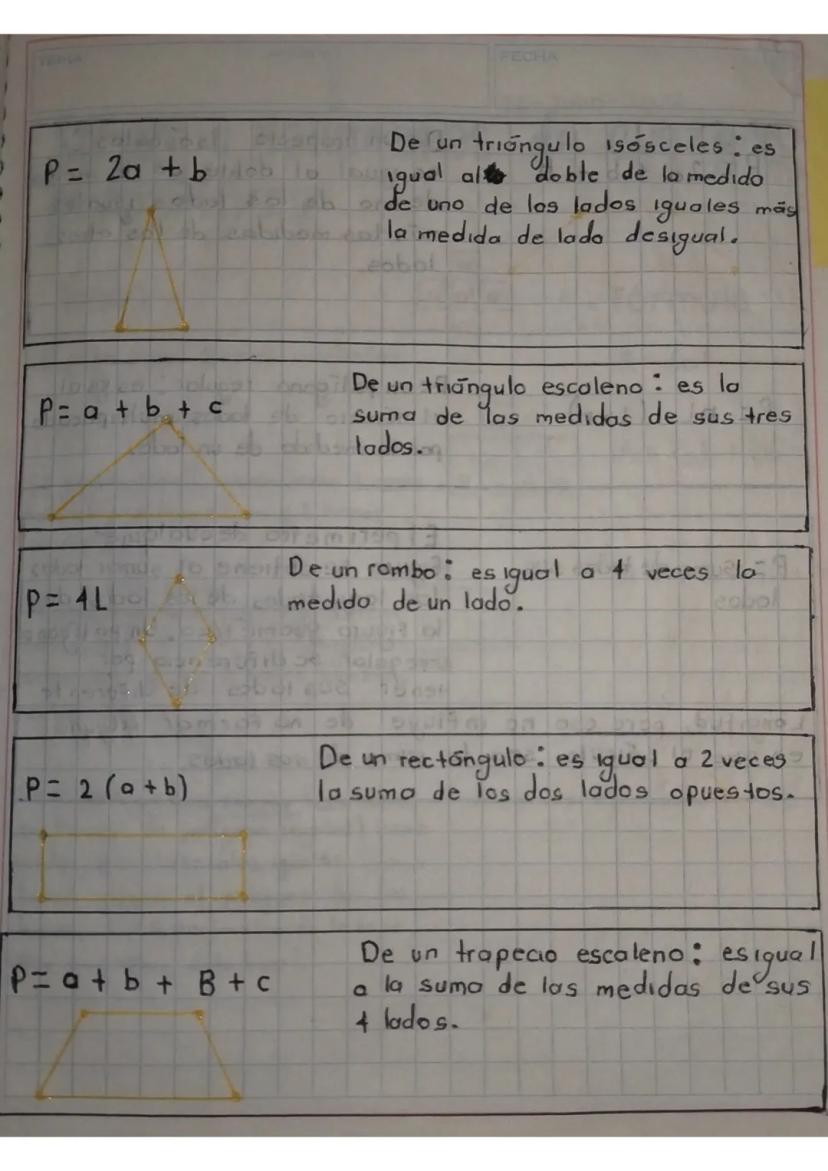 TEMA
FECHA
P = 2a + b
De un triángulo isósceles: es
igual al doble de la medida
de uno de los lados iguales más
la medida de lado desigual.
P = a + b + c
De un triángulo escaleno: es la
suma de las medidas de sus tres
lados.
P = 4L
De un rombo: es igual a 4 veces la
medida de un lado.
P = 2 (a + b)
De un rectángulo: es igual a 2 veces
la suma de los dos lados opuestos.
P = a + b + B + c
De un trapecio escaleno: es igual
a la suma de las medidas de sus
4 lados.